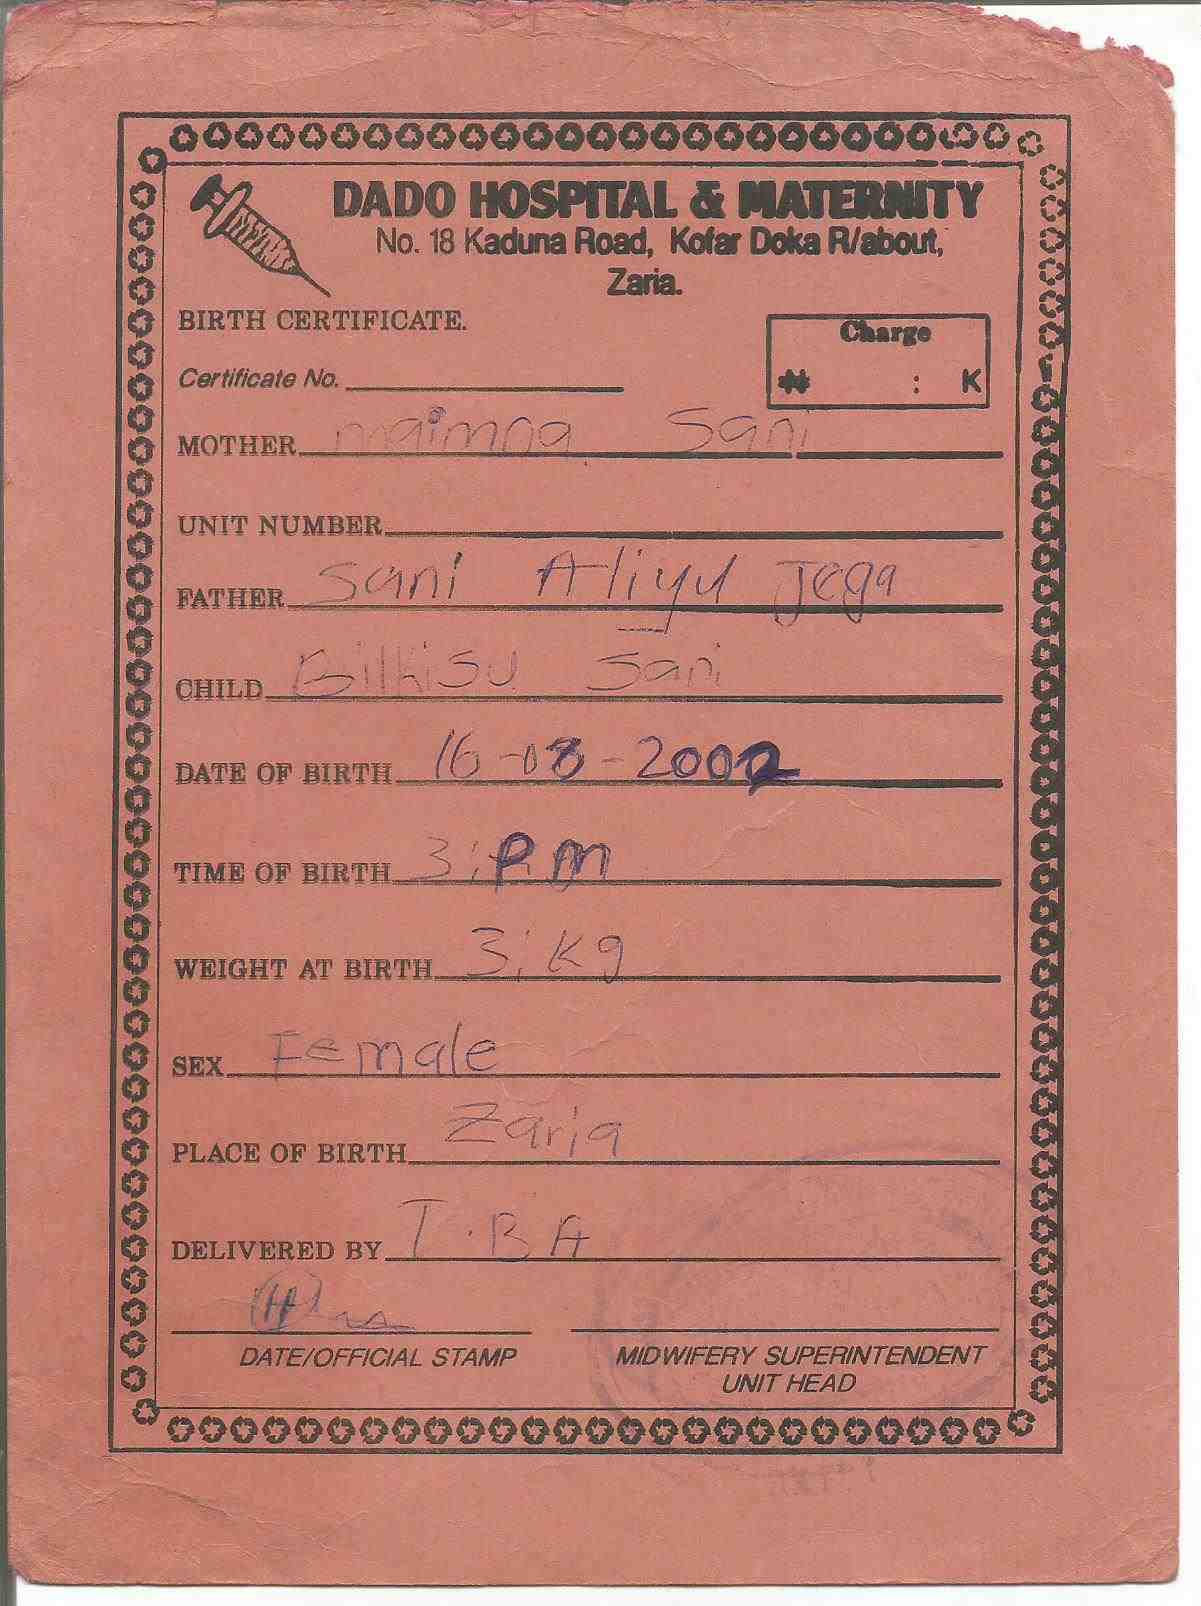 DADO HOSPITAL & MATERNITY
No. 18 Kaduna Road, Kofar Doka R/about,
Zaria.
BIRTH CERTIFICATE.
Charge
₦ : K
Certificate No.
MOTHER maimna Sani
UNIT NUMBER
FATHER Sani Aliyu Jega
CHILD Bilkisu Sani
DATE OF BIRTH 16-08-2002
TIME OF BIRTH 3: PM
WEIGHT AT BIRTH 3; Kg
SEX Female
PLACE OF BIRTH Zaria
DELIVERED BY T.B A
DATE/OFFICIAL STAMP
MIDWIFERY SUPERINTENDENT
UNIT HEAD